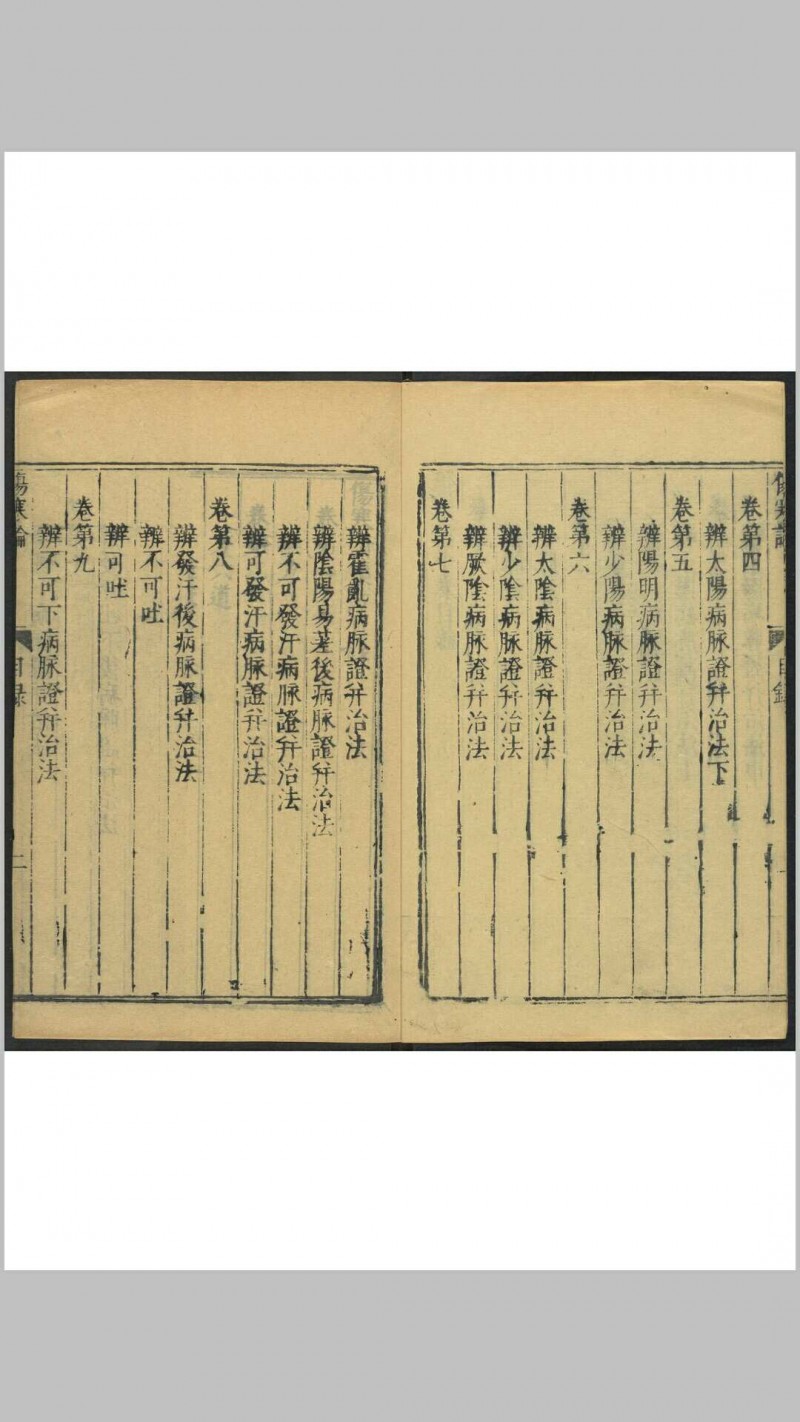 卷第四
辨太陽病脉證并治法下
卷第五
辨陽明病脉證并治法
辨少陽病脉證并治法
卷第六
辨太陰病脉證并治法
辨少陰病脉證并治法
辨厥陰病脉證并治法
卷第七
辨霍亂病脉證并治法
辨陰陽易差後病脉證并治法
辨不可發汗病脉證并治法
辨可發汗病脉證并治法
卷第八
辨發汗後病脉證并治法
辨不可吐
辨可吐
卷第九
辨不可下病脉證并治法
傷寒論 目録 二